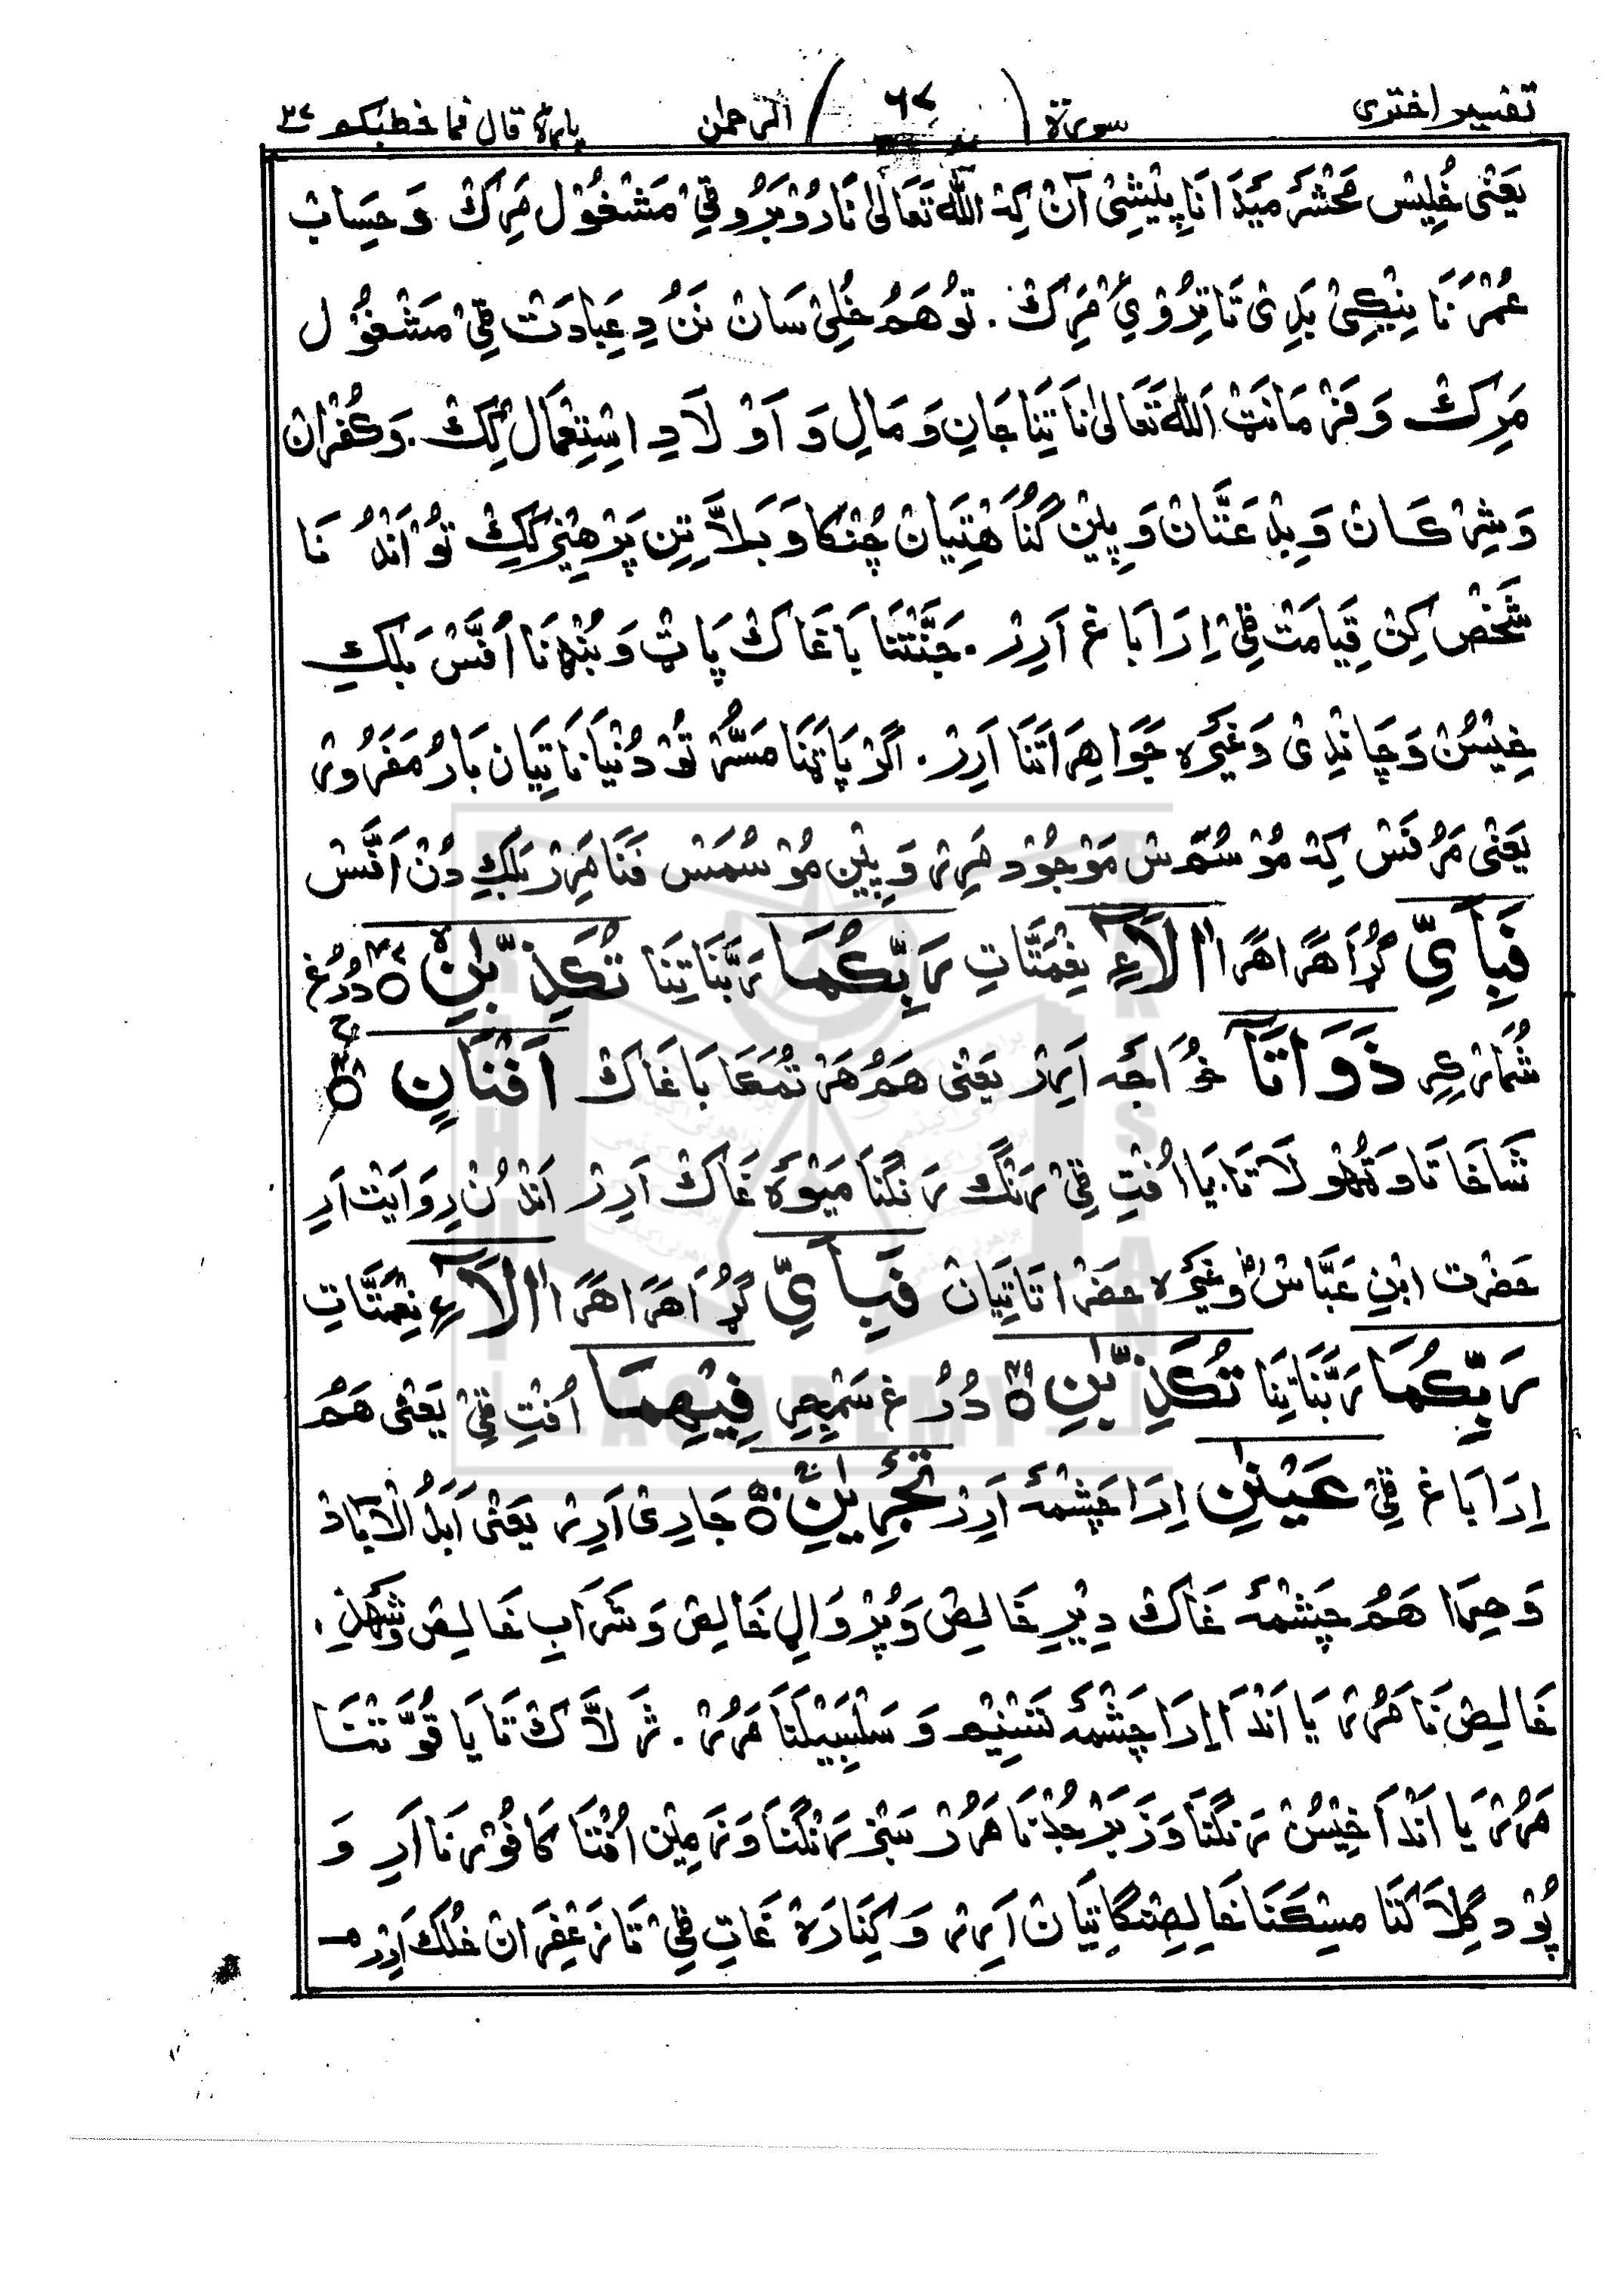 تفسیر اختری سورة ( ۶۷ ) الرحمٰن پارہ قال فما خطبکم ۲۷
یَعْنٰی خُلِیْس مَحْشَر مَیْدَانَا پِیْشِیْ آنْ کِہْ اَللّٰہ تَعَالٰی نَا رُوْبَرُو ٹِیْ مَشْغُوْل مَرِکْ وَ حِسَابْ
عُمْر نَا نِیْکِیْ بَدِیْ تَا تِرُوْیْ مَرِکْ . تُوْ هَمُ خُلِیْ سَانْ نَنْ دِ عِبَادَتْ ٹِیْ مَشْغُوْل
مَرِکْ وَ فَرْمَانَتْ اَللّٰہ تَعَالٰی نَا تِنَا جَانِ وَ مَالِ وَ اَوْلَادِ اِسْتِعْمَالْ کِکْ . وَ کُفْرَانْ
وَ شِرْکَانْ وَ بِدْعَتَّانْ وَ پِیْن گُنَاهْتِیَانْ چُنْکَا وَ بَلَّا تِن پَرْهِیْز کِکْ تُوْ اَنْدُنَا
شَخْص کِنْ قِیَامَتْ ٹِیْ اِرَا بَاغ اَرِرْ . جَنَّتْنَا بَاغَاکْ پَاٹ وَ بُنْڈنَا اَفَّسْ بَلْکِ
خِیْسُن وَ چَانْدِیْ وَغَیْرَہ جَوَاهِرَاتْنَا اَرِرْ . اَگَرْ پَاٹْنَا مَسُّرْ تُوْ دُنْیَا نَا تِیَان بَارْ مَفَرُورْ
یَعْنٰی مَرُفَسْ کِہْ مُوْسُمَسْ مَوْجُوْد مَرِرْ وَ پِیْن مُوْسُمَسْ فَنَا مَرِرْ بَلْکِ دُنْ اَفَّسْ
فَبِاَیِّ گُڑَا هَرَا هَرَا اٰلَآءِ نِعْمَتَّاتِ رَبِّکُمَا رَبَّنَا تِنَا تُکَذِّبٰنِ ۝۴۷ دُرُغ
شُمَار کِرِ ذَوَاتَآ خُوَاجَہ اَرِرْ یَعْنٰی هَمُ هَرْ تُمَکَا بَاغَاکْ اَفْنَانٍ ۝۴۸
شَاخَاتَا وَ ٹُهُولَا تَا یَا اُفْتِ ٹِیْ رَنْگ رَنْگنَا مَیْوَہ غَاکْ اَرِرْ اَنْدُنْ رِوَایَتْ اَرِ
حَضْرَت ابْنِ عَبَّاسْ وَغَیْرَہ حَضْرَاتَا تِیَانْ فَبِاَیِّ گُڑَا هَرَا هَرَا اٰلَآءِ نِعْمَتَّاتِ
رَبِّکُمَا رَبَّنَا تِنَا تُکَذِّبٰنِ ۝۴۹ دُرُغ سَمْجِرِ فِیْهِمَا اُفْتِ ٹِیْ یَعْنٰی هَمُ
اِرَا بَاغ ٹِیْ عَیْنٰنِ اِرَا چَشْمَہ اَرِرْ تَجْرِیٰنِ ۝۵۰ جَارِیْ اَرِرْ یَعْنٰی اَبَدُ الْاٰبَادْ
وَ هَمُ چَشْمَہ غَاکْ دِیْرِ خَالِصْ وَ پُرْوَالِ خَالِصْ وَ شَرَابِ خَالِصْ وَ شَهْدِ .
خَالِصْ نَا مَرُرْ یَا اَنْدَا اِرَا چَشْمَہ تَسْنِیْم وَ سَلْسَبِیْلَنَا مَرُرْ . تَا یَا قُوَّتْنَا
مَرُرْ یَا اَنْدَا خِیْسُنْ رَنْگنَا وَ زَبَرْجُدْنَا مَرُرْ سَبْز رَنْگنَا وَ زَمِیْن اُفْتَا کَافُوْر نَا اَرِ وَ
مِسْکَنَا خَالِصَنْگا تِیَانْ اَرِرْ وَ کِنَارَہ غَاتِ ٹِیْ تَا زَعْفَرَانْ خُلُکْ اَرِرْ